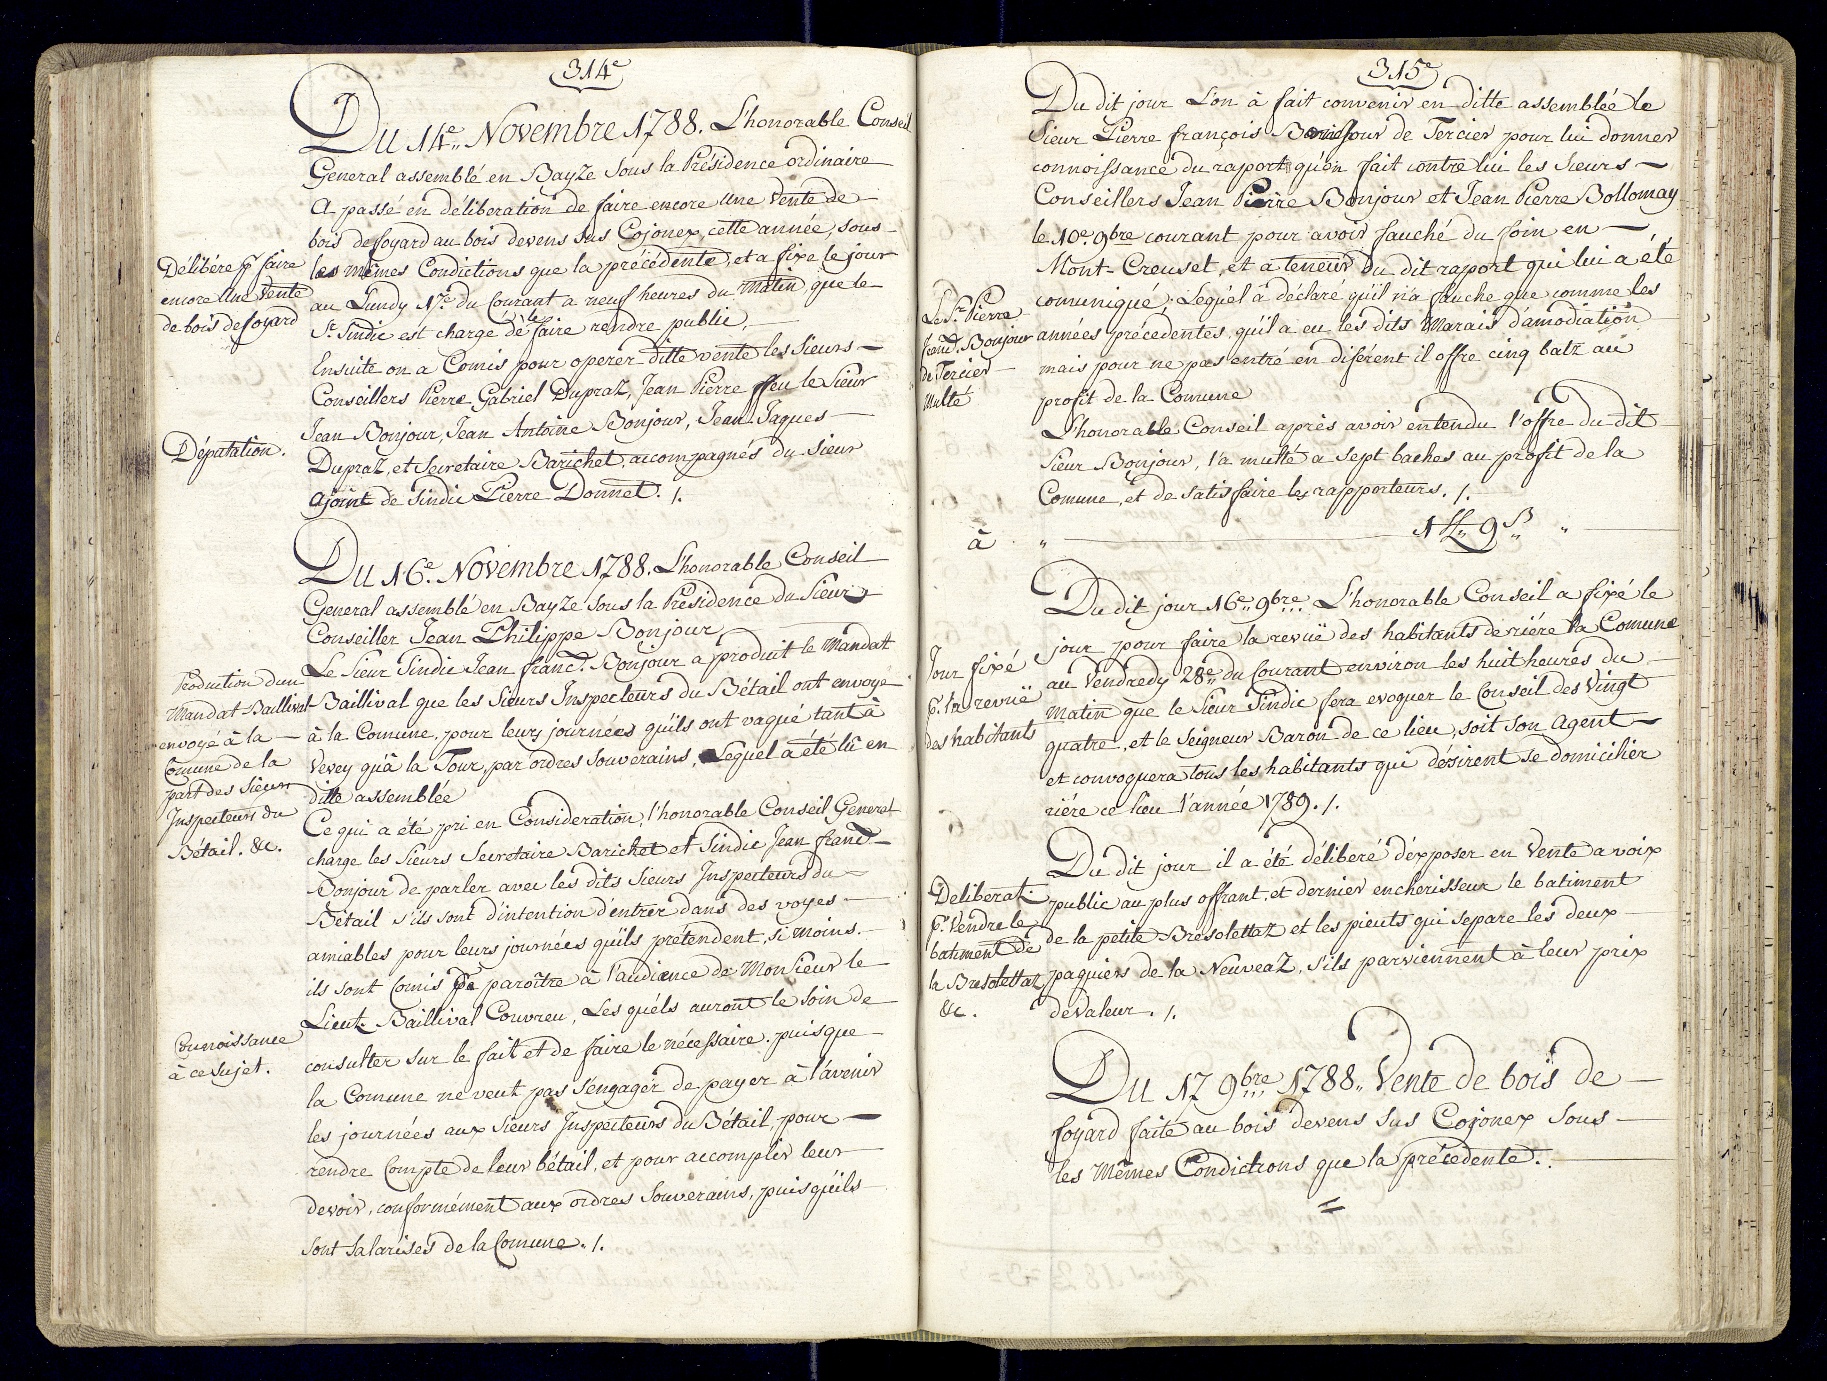 314e
Du 14e,, Novembre 1788. L'honorable Conseil
General assemblé en BayZe sous la Présidence ordinaire
A passé en déliberation de faire encore une Vente de
bois defoyard au bois devens sus Cojonex, cette année, sous
les mêmes Condictions que la précédente, et a fixé le jour
au Lundy 17e. du Courant a neuf heures du matin, que le
Sr. Sindic est chargé de le faire rendre public,
Ensuite on a Comis pour operer ditte vente les Sieurs
Conseillers Pierre Gabriel DupraZ, Jean Pierre ffeu le Sieur
Jean Bonjour, Jean Antoine Bonjour, Jean Jaques
DupraZ, et Secretaire Barichet, accompagnés du Sieur
Ajoint de Sindic Pierre Donnet. /.
Délibéré p. faire
encore une Vente
de bois de foyard
Députation.
Du 16e. Novembre 1788. L'honorable Conseil
General assemblé en BayZe sous la Présidence du Sieur
Conseiller Jean Philippe Bonjour
Le Sieur Sindic Jean franc̃. Bonjour a produit le Mandat
Baillival que les Sieurs Inspecteurs du Bétail ont envoyé
à la Comune, pour leurs journées qu'ils ont vaqué tant à
Vevey qu'à la Tour, par ordres Souverains, Lequel a été lû en
ditte assemblée
Ce qui a été pri en Consideration, l'honorable Conseil General
charge les Sieurs Secretaire Barichet et Sindic Jean franc̃.
Bonjour de parler avec les dits Sieurs Inspecteurs du
Bétail s'ils sont d'intention d'entrer dans des voyes
amiables pour leurs journées qu'ils prétendent, si moins.
ils sont Comis pr paroître à l'audiance de Monsieur le
Lieut. Baillival Couvreu, Les quéls auront le soin de
consulter sur le fait et de faire le nécessaire. puisque
la Comune ne veut pas s'engager de payer à l'avenir
les journées aux Sieurs Inspecteurs du Bétail, pour
rendre Compte de leur bétail, et pour accomplir leur
devoir, conformément aux ordres Souverains, puisqu'ils
sont Salarisés de la Comune. /.
Production dun
Mandat Baillival
envoyé à la
Comune de la
part des Sieurs
Inspecteurs du
Bétail. &c.
Connoissance
à ce sujet.
315e
Du dit jour L'on à fait convenir en ditte assemblée le
Sieur Pierre françois Bonjour de Tercier pour lui donner
connoissance du raport qu'on fait contre lui les Sieurs
Conseillers Jean Pierre Bonjour et Jean Pierre Bollomay
le 10e. 9bre courant pour avoir fauché du foin en
Mont-Creuset, et a teneur du dit raport qui lui a été
comuniqué; Lequél à déclaré qu'il n'a fauché que comme les
années précedentes, qu'il a eu les dits Marais d'amodiation
mais pour ne pas entré en diférent il offre cinq batz au
profit de la Comune
L'honorable Conseil après avoir entendu l'offre du dit
Sieur Bonjour, l'a multé a sept baches au profit de la
Comune, et de satisfaire les rapporteurs. /.
à " 1 ff,, 9 ß,, "
Le Sr. Pierre
franc̃. Bonjour
de Tercier
Multé
Du dit jour 16e,, 9bre,,, L'honorable Conseil a fixé le
jour pour faire la revuë des habitants deriére la Comune
au Vendredy 28e,, du Courant environ les huit heures du
matin que le Sieur Sindic fera evoquer le Conseil des Vingt
quatre, et le Seigneur Baron de ce lieu, soit son Agent
et convoquera tous les habitants qui désirent se domicilier
riére ce lieu l'année 1789. /.
Jour fixé
p. la revuë
des habitants
Du dit jour il a été déliberé d'exposer en Vente a voix
public au plus offrant, et dernier encherisseur le batiment
de la petite BresolettaZ et les pieuts qui separe les deux
paquiers de la NeuveaZ, s'ils parviennent à leur prix
de Valeur. /.
Deliberat.
p. Vendre le
batiment de
la BresolettaZ
&c.
Du 17 9bre,,, 1788,, Vente de bois de
foyard faite au bois devens sus Cojonex sous
les Mêmes Condictions que la précédente.